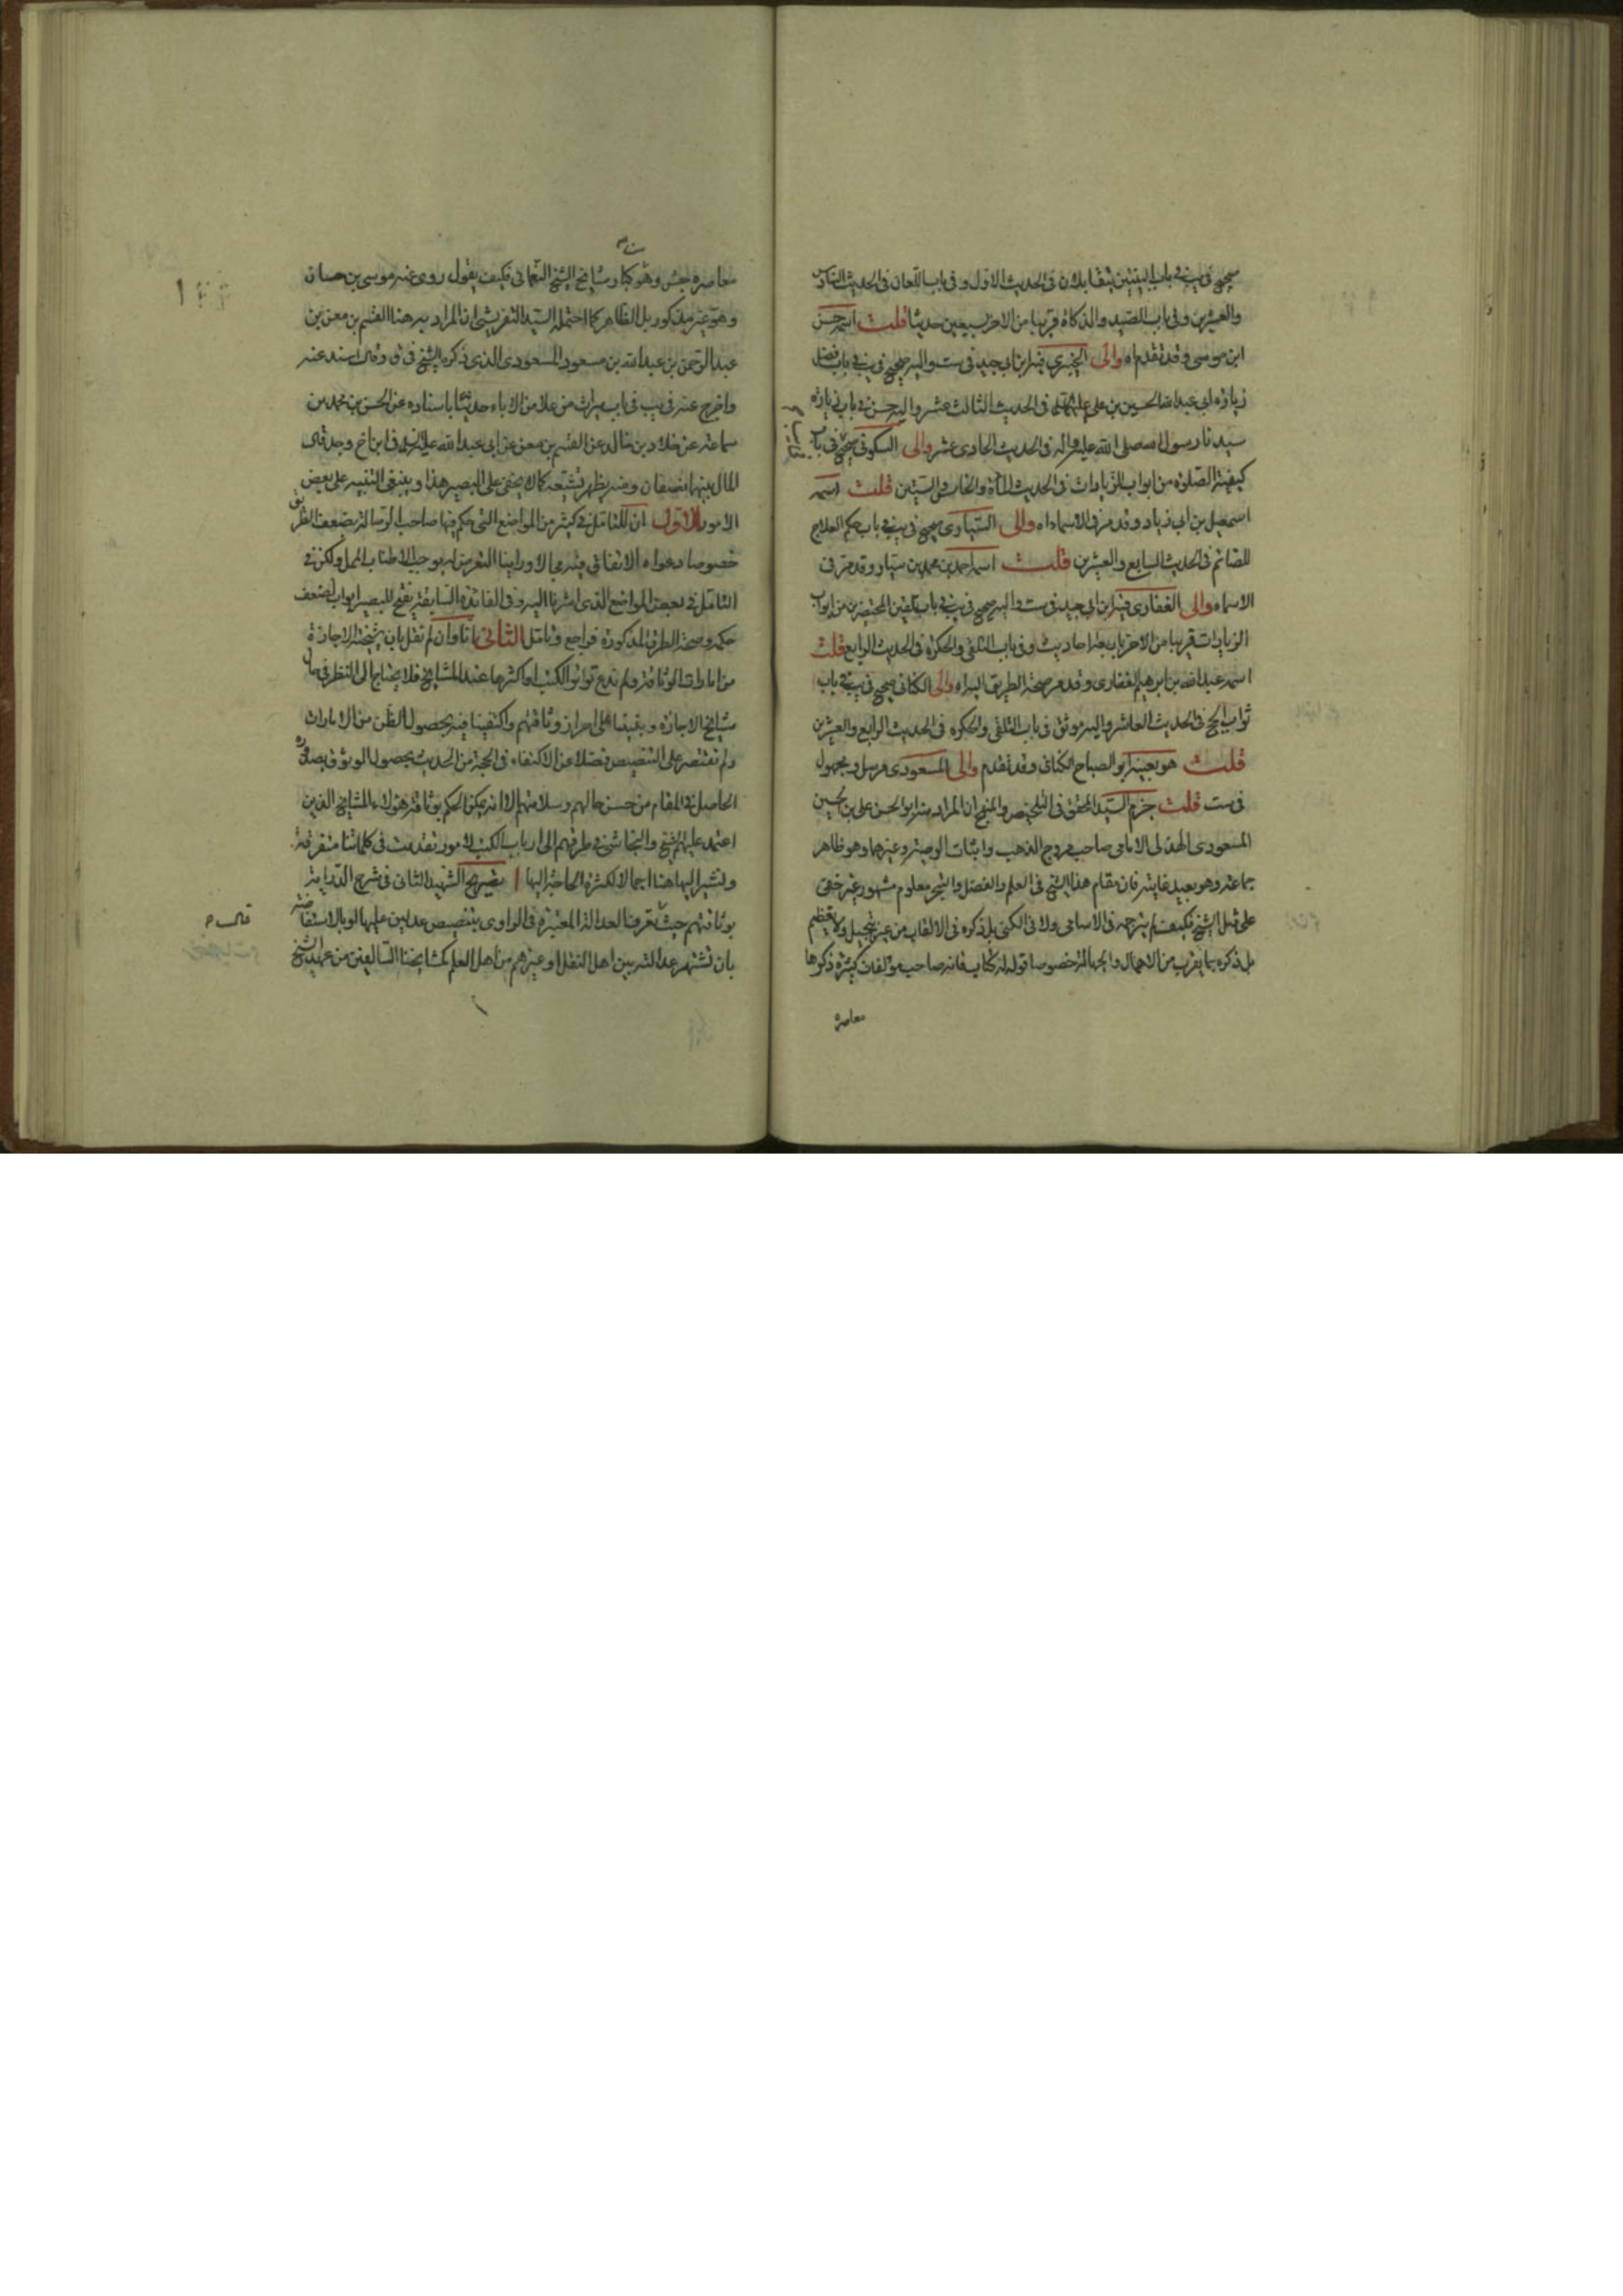 صحيح في يب في باب البينتين يتقابلان في الحديث الاول وفي باب اللعان في الحديث السادس
والعشرين وفي باب الصيد والذكاة قريبا من الاخر بسبعين حديثا قلت اسمه حسن
ابن موسى وقد تقدم اه والى الخيبري فيه ابن ابي جيد في ست واليه صحيح في يب في باب فضل
زيارة ابي عبد الله الحسين بن علي عليهما السلام في الحديث الثالث عشر واليه حسن في باب زيارة
سيدنا رسول الله صلى الله عليه واله في الحديث الحادي عشر والى السكوني صحيح في باب
كيفية الصلوة من ابواب الزيادات في الحديث المأة والخامس والستين قلت اسمه
اسمعيل بن ابي زياد وقد مر في الاسماء اه والى السياري صحيح في يب في باب حكم العلاج
للصائم في الحديث السابع والعشرين قلت اسمه احمد بن محمد بن سيار وقد مر في
الاسماء والى الغفاري فيه ابن ابي جيد في ست واليه صحيح في يب في باب تلقين المحتضرين من ابواب
الزيادات قريبا من الاخر باربعة احاديث وفي باب التلقي والحكرة في الحديث الرابع قلت
اسمه عبد الله بن ابرهيم الغفاري وقد مر صحة الطريق اليه اه والى الكناني صحيح في يب في باب
ثواب الحج في الحديث العاشر واليه موثق في باب التلقي والحكره في الحديث الرابع والعشرين
قلت هو بعينه ابو الصباح الكناني وقد تقدم والى المسعودي مرسل ومجهول
في ست قلت جزم السيد المحقق في التلخيص والمنهج ان المراد منه ابو الحسن علي بن الحسين
المسعودي الهذلي الامامي صاحب مروج الذهب واثبات الوصية وغيرهما وهو ظاهر
جماعة وهو بعيد غايته فان مقام هذا الشيخ في العلم والفضل والتبحر معلوم مشهور غير خفي
على مثل الشيخ فكيف لم يترجمه في الاسامي ولا في الكنى بل ذكره في الالقاب من غير تبجيل ولا تعظيم
بل ذكره بما يقرب من الاهمال والجهالة خصوصا قوله له كتاب فانه صاحب مؤلفات كثيرة ذكرها
معاصره
معاصره جش وهو من كبار مشايخ الشيخ النعماني فكيف يقول روى عنه موسى بن حسان
وهو غير مذكور بل الظاهر كما احتمله السيد التفريشي ان المراد به هنا القسم بن معن بن
عبد الرحمن بن عبد الله بن مسعود المسعودي الذي ذكره الشيخ في ق وقال اسند عنه
واخرج عنه في يب في باب ميراث من علا من الاباء حديثا باسناده عن الحسن بن محمد بن
سماعة عن خلاد بن خالد عن القسم بن معن عن ابي عبد الله عليه السلام في ابن اخ وجد قال
المال بينهما نصفان ومنه يظهر تشيعه كما لا يخفى على البصير هذا وينبغي التنبيه على بعض
الامور الاول ان للتأمل في كثير من المواضع التي حكم فيها صاحب الرسالة بضعف الطريق
خصوصا دعواه الاتفاق فيه مجالا وراينا التعرض له يوجب الاطناب الممل ولكن في
التامل في بعض المواضع الذي اشرنا اليه وفي الفائدة السابقة يفتح للبصير ابواب ضعف
حكمه وصحة الطرق المذكورة فراجع وتامل الثاني انا وان لم نقل بان شيخية الاجازة
من امارات الوثاقة ولم ندع تواتر الكتب او اكثرها عند المشايخ فلا يحتاج الى النظر في حال
مشايخ الاجازة وبقينا على احراز وثاقتهم واكتفينا فيه بحصول الظن من الامارات
ولم نقتصر على التنصيص فضلا عن الاكتفاء في الحجة من الحديث بحصول الوثوق بصدوره
الحاصل في المقام من حسن حالهم وسلامتهم الا انه يمكن الحكم بوثاقة هؤلاء المشايخ الذين
اعتمد عليهم شيخ والنجاشي في طرقهم الى ارباب الكتب لامور تقدمت في كلماتنا متفرقة
ونشير اليها هنا اجمالا لكثرة الحاجة اليها ا تصريح الشهيد الثاني في شرح الدراية
بوثاقتهم حيث قال تعرف العدالة المعتبرة في الراوي بتنصيص عدلين عليها او بالاستفاضة
بان تشتهر عدالته بين اهل النقل او غيرهم من اهل العلم كمشايخنا السالفين من عهد الشيخ